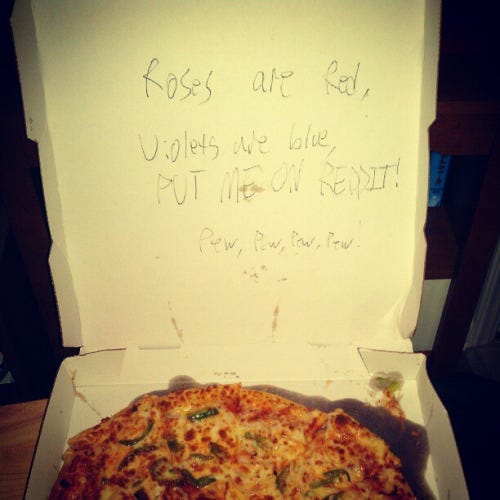 Roses are Red,
Violets are blue,
PUT ME ON REDDIT!
Pew, Pew, Pew, Pew!